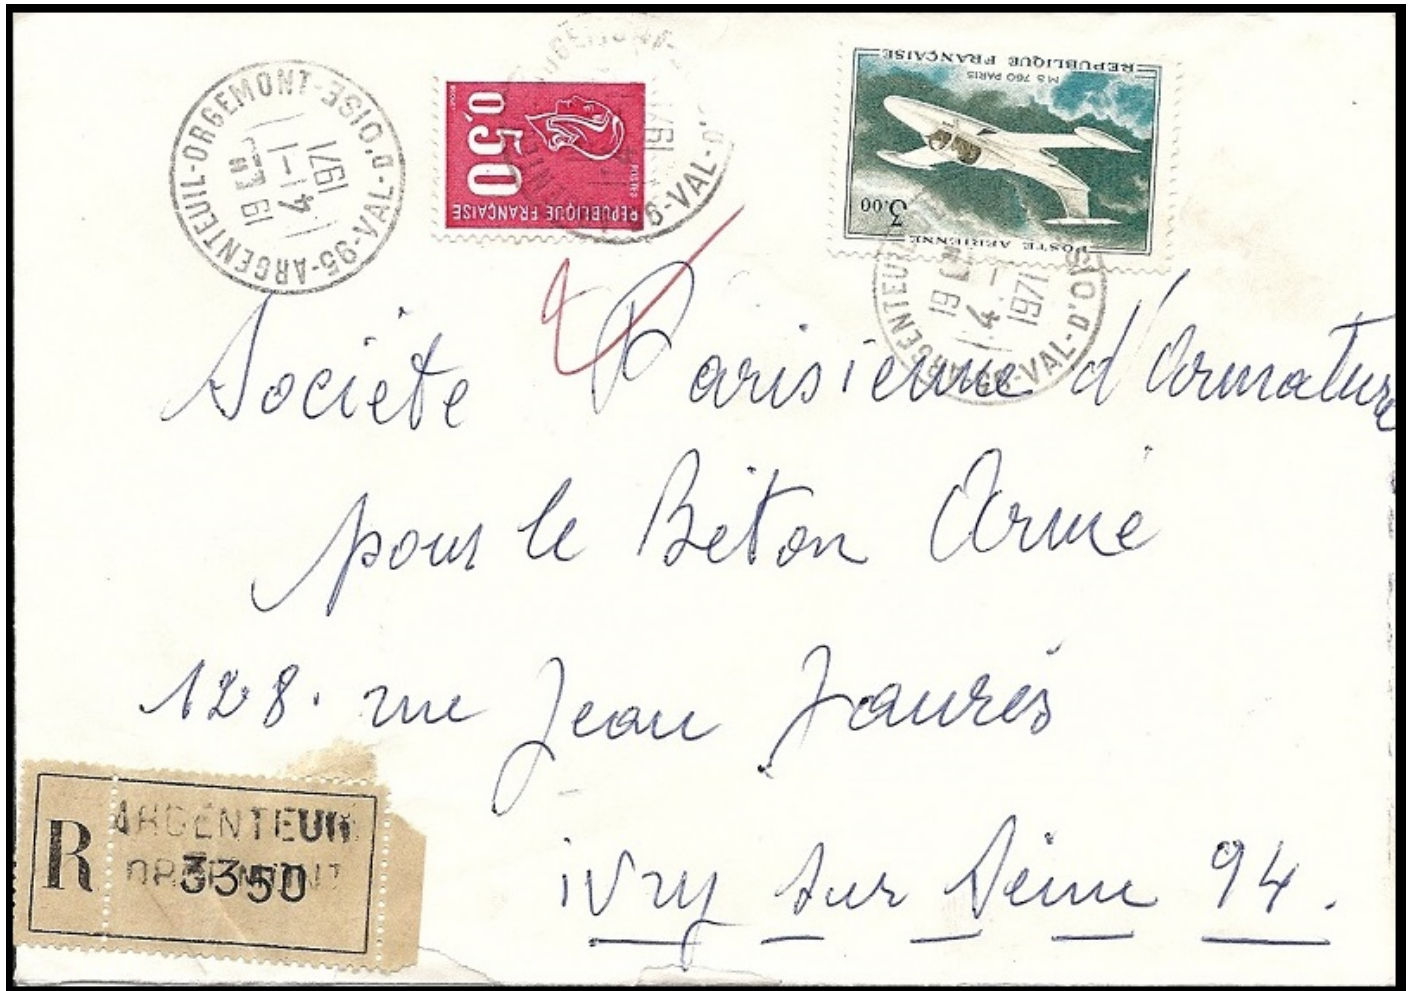 ARGENTEUIL-ORGEMONT
95-VAL-D'OISE
19 H
1-4
1971
0,50
BEQUET
POSTES
REPUBLIQUE FRANÇAISE
1971
VAL-D'
REPUBLIQUE FRANÇAISE
MS 760 PARIS
3,00
POSTE AERIENNE
ARGENTEUIL
19 H
1-4
1971
95-VAL-D'OISE
Société Parisienne d'Armature
pour le Béton Armé
128. rue Jean Jaurès
ivry sur Seine 94.
R
ARGENTEUIL
ORGEMONT
3350